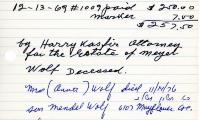 12-13-69 #1009 paid $250.00
marker 7.00
$257.50
by Harry Kasfir Attorney
for the Estate of Meyer
Wolf Deceased.
Mrs (Anna) Wolf died 11/14/76
son Mendel Wolf 6107 Mayflower Ave.